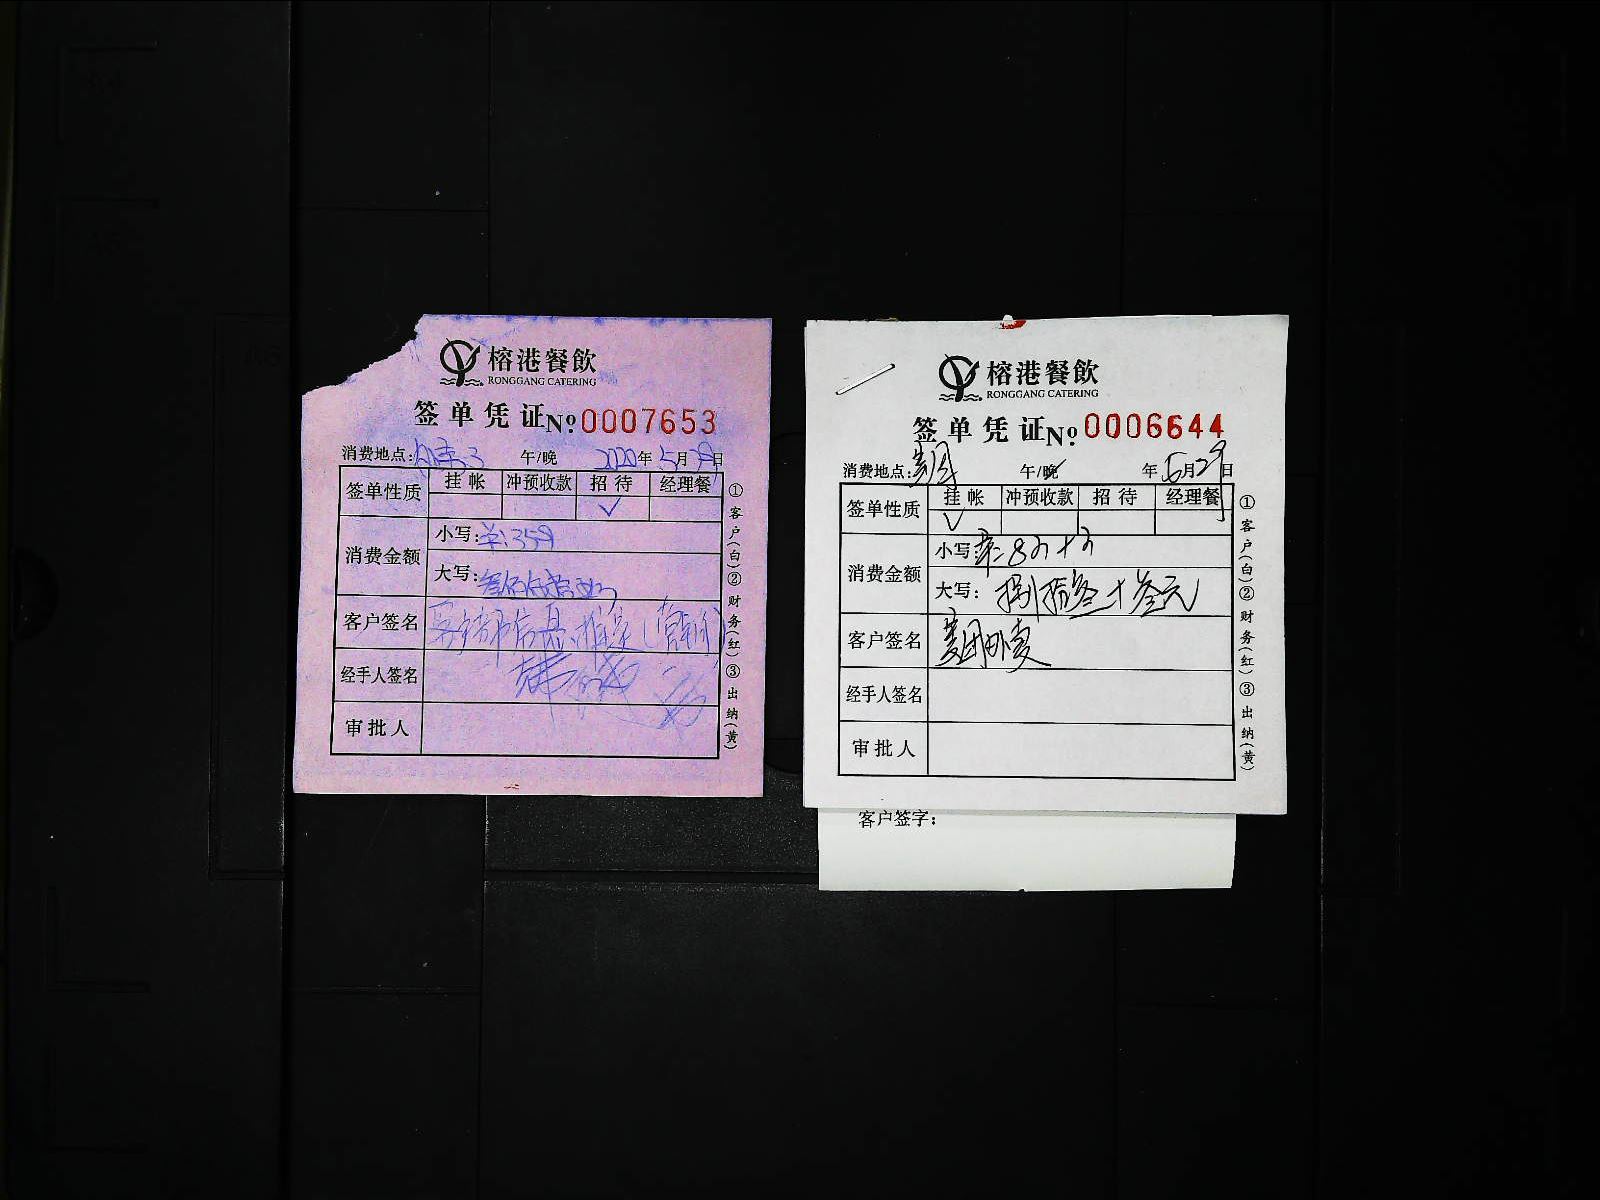 榕港餐飲
RONGGANG CATERING
签单凭证 No: 0007653
消费地点: 午/晚 2020年5月29日
签单性质 挂帐 冲预收款 招待 经理餐
✓
消费金额 小写: ¥:359
大写:
客户签名
经手人签名
审批人
①客户(白)②财务(红)③出纳(黄)
榕港餐飲
RONGGANG CATERING
签单凭证 No: 0006644
消费地点: 午/晚 年5月29日
签单性质 挂帐 冲预收款 招待 经理餐
✓
消费金额 小写
大写:
客户签名 美团外卖
经手人签名
审批人
①客户(白)②财务(红)③出纳(黄)
客户签字: